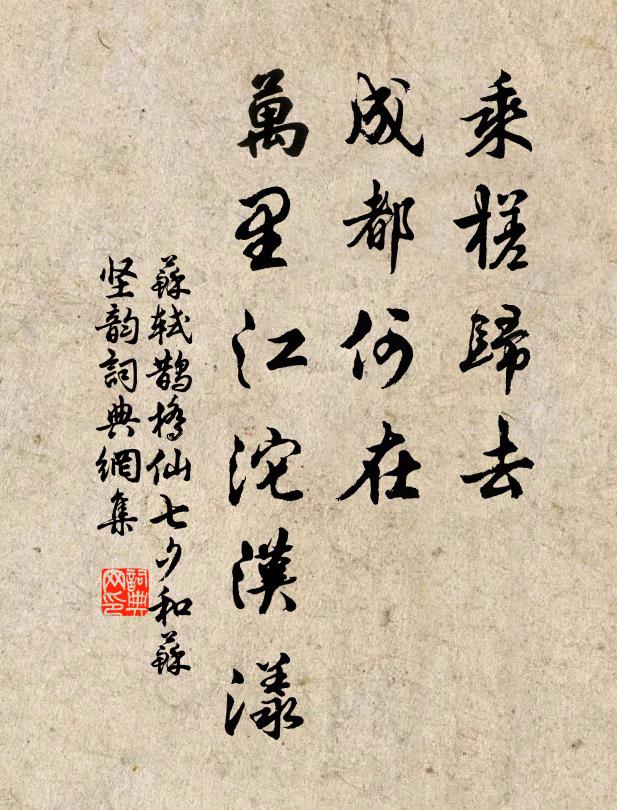 乘槎歸去
成都何在
萬里江沱漢漾
蘇軾鵲橋仙七夕和蘇
坚韵詞典網集
詞典
网印